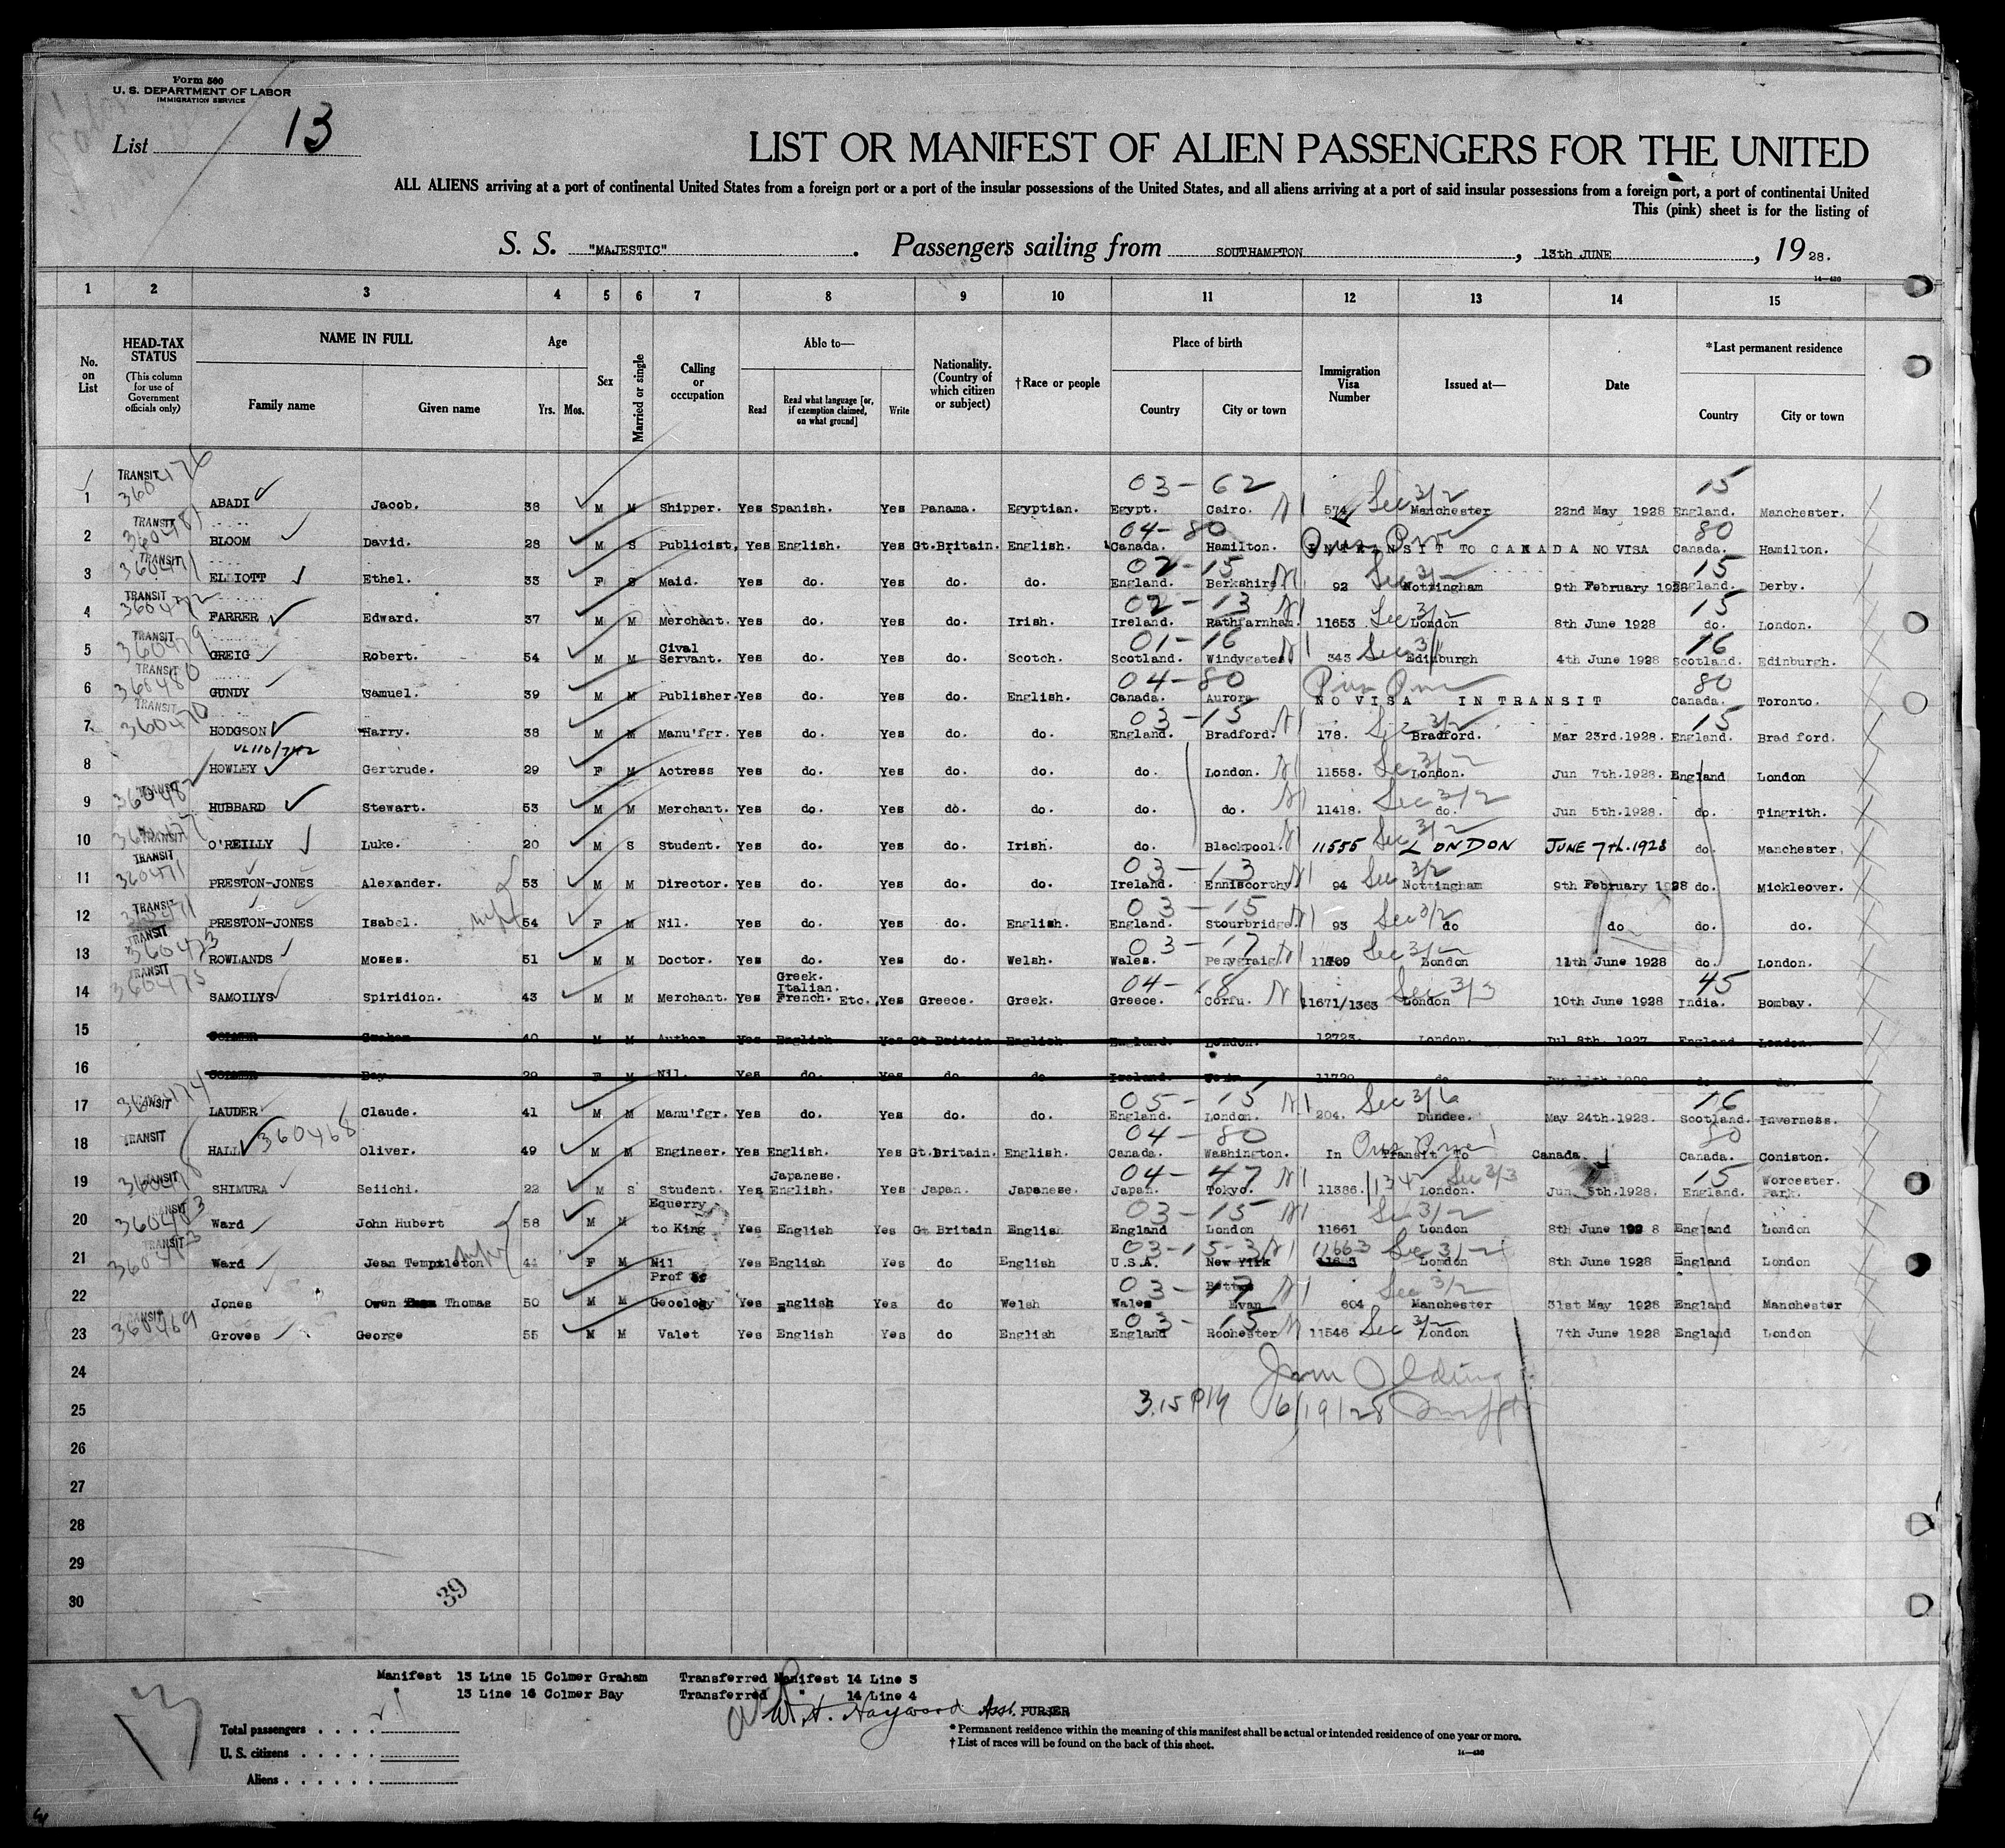 Form 500
U. S. DEPARTMENT OF LABOR
IMMIGRATION SERVICE
List 13
LIST OR MANIFEST OF ALIEN PASSENGERS FOR THE UNITED
ALL ALIENS arriving at a port of continental United States from a foreign port or a port of the insular possessions of the United States, and all aliens arriving at a port of said insular possessions from a foreign port, a port of continental United
This (pink) sheet is for the listing of
S. S. "MAJESTIC". Passengers sailing from SOUTHAMPTON, 13th JUNE, 1928.
1 2 3 4 5 6 7 8 9 10 11 12 13 14 15
No. on List
HEAD-TAX STATUS (This column for use of Government officials only)
NAME IN FULL Family name Given name
Age Yrs. Mos.
Sex
Married or single
Calling or occupation
Able to— Read Read what language [or, if exemption claimed, on what ground] Write
Nationality. (Country of which citizen or subject)
†Race or people
Place of birth Country City or town
Immigration Visa Number
Issued at—
Date
*Last permanent residence Country City or town
03-62 Sec 3/2 15
1 TRANSIT 360476 ABADI Jacob. 38 M M Shipper. Yes Spanish. Yes Panama. Egyptian. Egypt. Cairo. 574 Manchester 22nd May 1928 England. Manchester.
04-80 80
2 TRANSIT 360481 BLOOM David. 28 M S Publicist, Yes English. Yes Gt.Britain. English. Canada. Hamilton. IN TRANSIT TO CANADA NO VISA Canada. Hamilton.
02-15 15
3 TRANSIT 360471 ELLIOTT Ethel. 33 F S Maid. Yes do. Yes do. do. England. Berkshire 92 Nottingham 9th February 1928 England. Derby.
02-13 Sec 3/2 15
4 TRANSIT 360472 FARRER Edward. 37 M M Merchant. Yes do. Yes do. Irish. Ireland. Rathfarnham. 11653 London 8th June 1928 do. London.
01-16 16
5 TRANSIT 360479 GREIG Robert. 54 M M Cival Servant. Yes do. Yes do. Scotch. Scotland. Windygates 343 Edinburgh 4th June 1928 Scotland. Edinburgh.
04-80 80
6 TRANSIT 360480 GUNDY Samuel. 39 M M Publisher. Yes do. Yes do. English. Canada. Aurora NO VISA IN TRANSIT Canada. Toronto.
03-15 Sec 3/2 15
7 TRANSIT 360470 HODGSON Harry. 38 M M Manu'fgr. Yes do. Yes do. do. England. Bradford. 178. Bradford. Mar 23rd.1928. England. Brad ford.
8 HOWLEY Gertrude. 29 F M Actress Yes do. Yes do. do. do. London. 11558. Sec 3/2 London. Jun 7th.1928. England London
9 TRANSIT HUBBARD Stewart. 53 M M Merchant. Yes do. Yes do. do. do. do. 11418. Sec 3/2 do. Jun 5th.1928. do. Tingrith.
10 TRANSIT O'REILLY Luke. 20 M S Student. Yes do. Yes do. Irish. do. Blackpool. 11555 Sec 3/2 LONDON JUNE 7th.1928 do. Manchester.
03-13
11 TRANSIT 360471 PRESTON-JONES Alexander. 53 M M Director. Yes do. Yes do. do. Ireland. Enniscorthy 94 Sec 3/2 Nottingham 9th February 1928 do. Mickleover.
03-15
12 TRANSIT PRESTON-JONES Isabel. 54 F M Nil. Yes do. Yes do. English. England. Stourbridge. 93 Sec 3/2 do do do. do.
03-17
13 TRANSIT 360473 ROWLANDS Moses. 51 M M Doctor. Yes do. Yes do. Welsh. Wales. Penygraig. 11709 Sec 3/2 London 11th June 1928 do. London.
04-18 45
14 TRANSIT 360475 SAMOILYS Spiridion. 43 M M Merchant. Yes Greek. Italian. French. Etc. Yes Greece. Greek. Greece. Corfu. 11671/1363 Sec 3/3 London 10th June 1928 India. Bombay.
15 COLMER Graham 40 M M Author Yes English Yes Gt Britain English England. London. 12723. London. Jul 8th. 1927 England London.
16 COLMER Bay 29 F M Nil. Yes do. Yes do do Ireland. 11720 do do.
05-15 16
17 TRANSIT 360474 LAUDER Claude. 41 M M Manu'fgr. Yes do. Yes do. do. England. London. 204. Sec 3/6 Dundee. May 24th.1928. Scotland. Inverness.
04-80 80
18 TRANSIT HALL 360468 Oliver. 49 M M Engineer. Yes English. Yes Gt.Britain. English. Canada. Washington. In Transit To Canada Canada. Coniston.
04-47 15
19 TRANSIT SHIMURA Seiichi. 22 M S Student. Yes Japanese. English. Yes Japan. Japanese. Japan. Tokyo. 11386. Sec 3/3 London. Jun 5th.1928. England. Worcester. Park.
03-15
20 Ward John Hubert 58 M M Equerry to King Yes English Yes Gt Britain English England London 11661 Sec 3/2 London 8th June 1928 England London
03-15-3 11663
21 TRANSIT Ward Jean Templeton 44 F M Nil Yes English Yes do English U.S.A. New York Sec 3/2 London 8th June 1928 England London
03-17
22 Jones Owen Thomas 50 M M Prof of Geoelogy Yes English Yes do Welsh Wales Evan 604 Sec 3/2 Manchester 31st May 1928 England Manchester
03-15
23 TRANSIT 360469 Groves George 55 M M Valet Yes English Yes do English England Rochester 11546 Sec 3/2 London 7th June 1928 England London
24
25 3.15 PM 6/19/28
26
27
28
29
30
39
Manifest 13 Line 15 Colmer Graham Transferred Manifest 14 Line 3
" 13 Line 16 Colmer Bay Transferred " 14 Line 4
W. H. Hayward Asst. PURSER
Total passengers
U. S. citizens
Aliens
* Permanent residence within the meaning of this manifest shall be actual or intended residence of one year or more.
† List of races will be found on the back of this sheet.
13